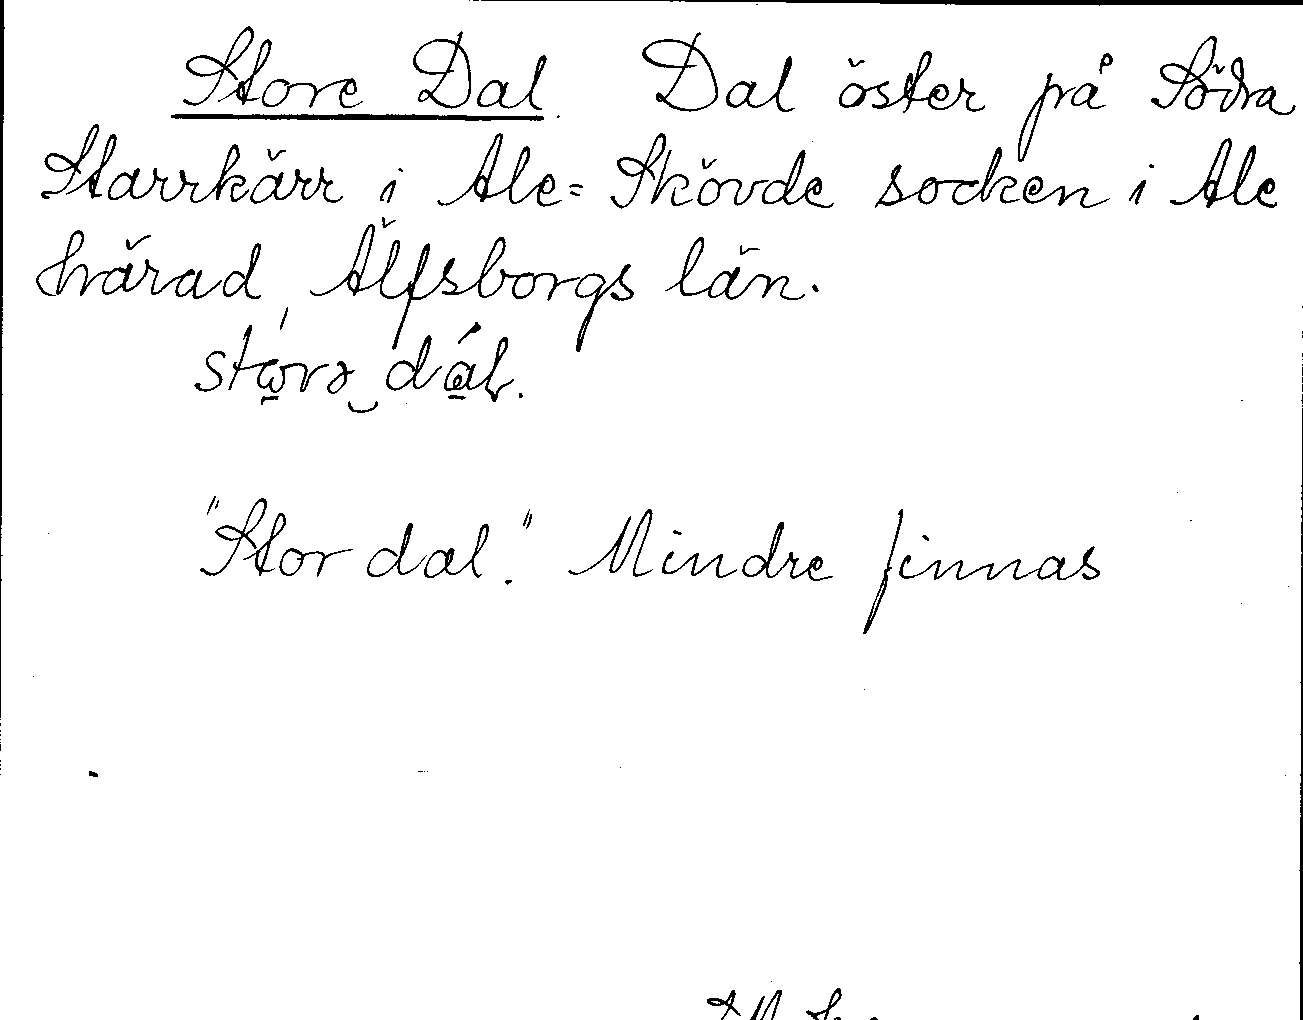 Store Dal. Dal öster på Södra
Starrkärr i Ale=Skövde socken i Ale
härad, Älfsborgs län.
"Stor dal." Mindre finnas